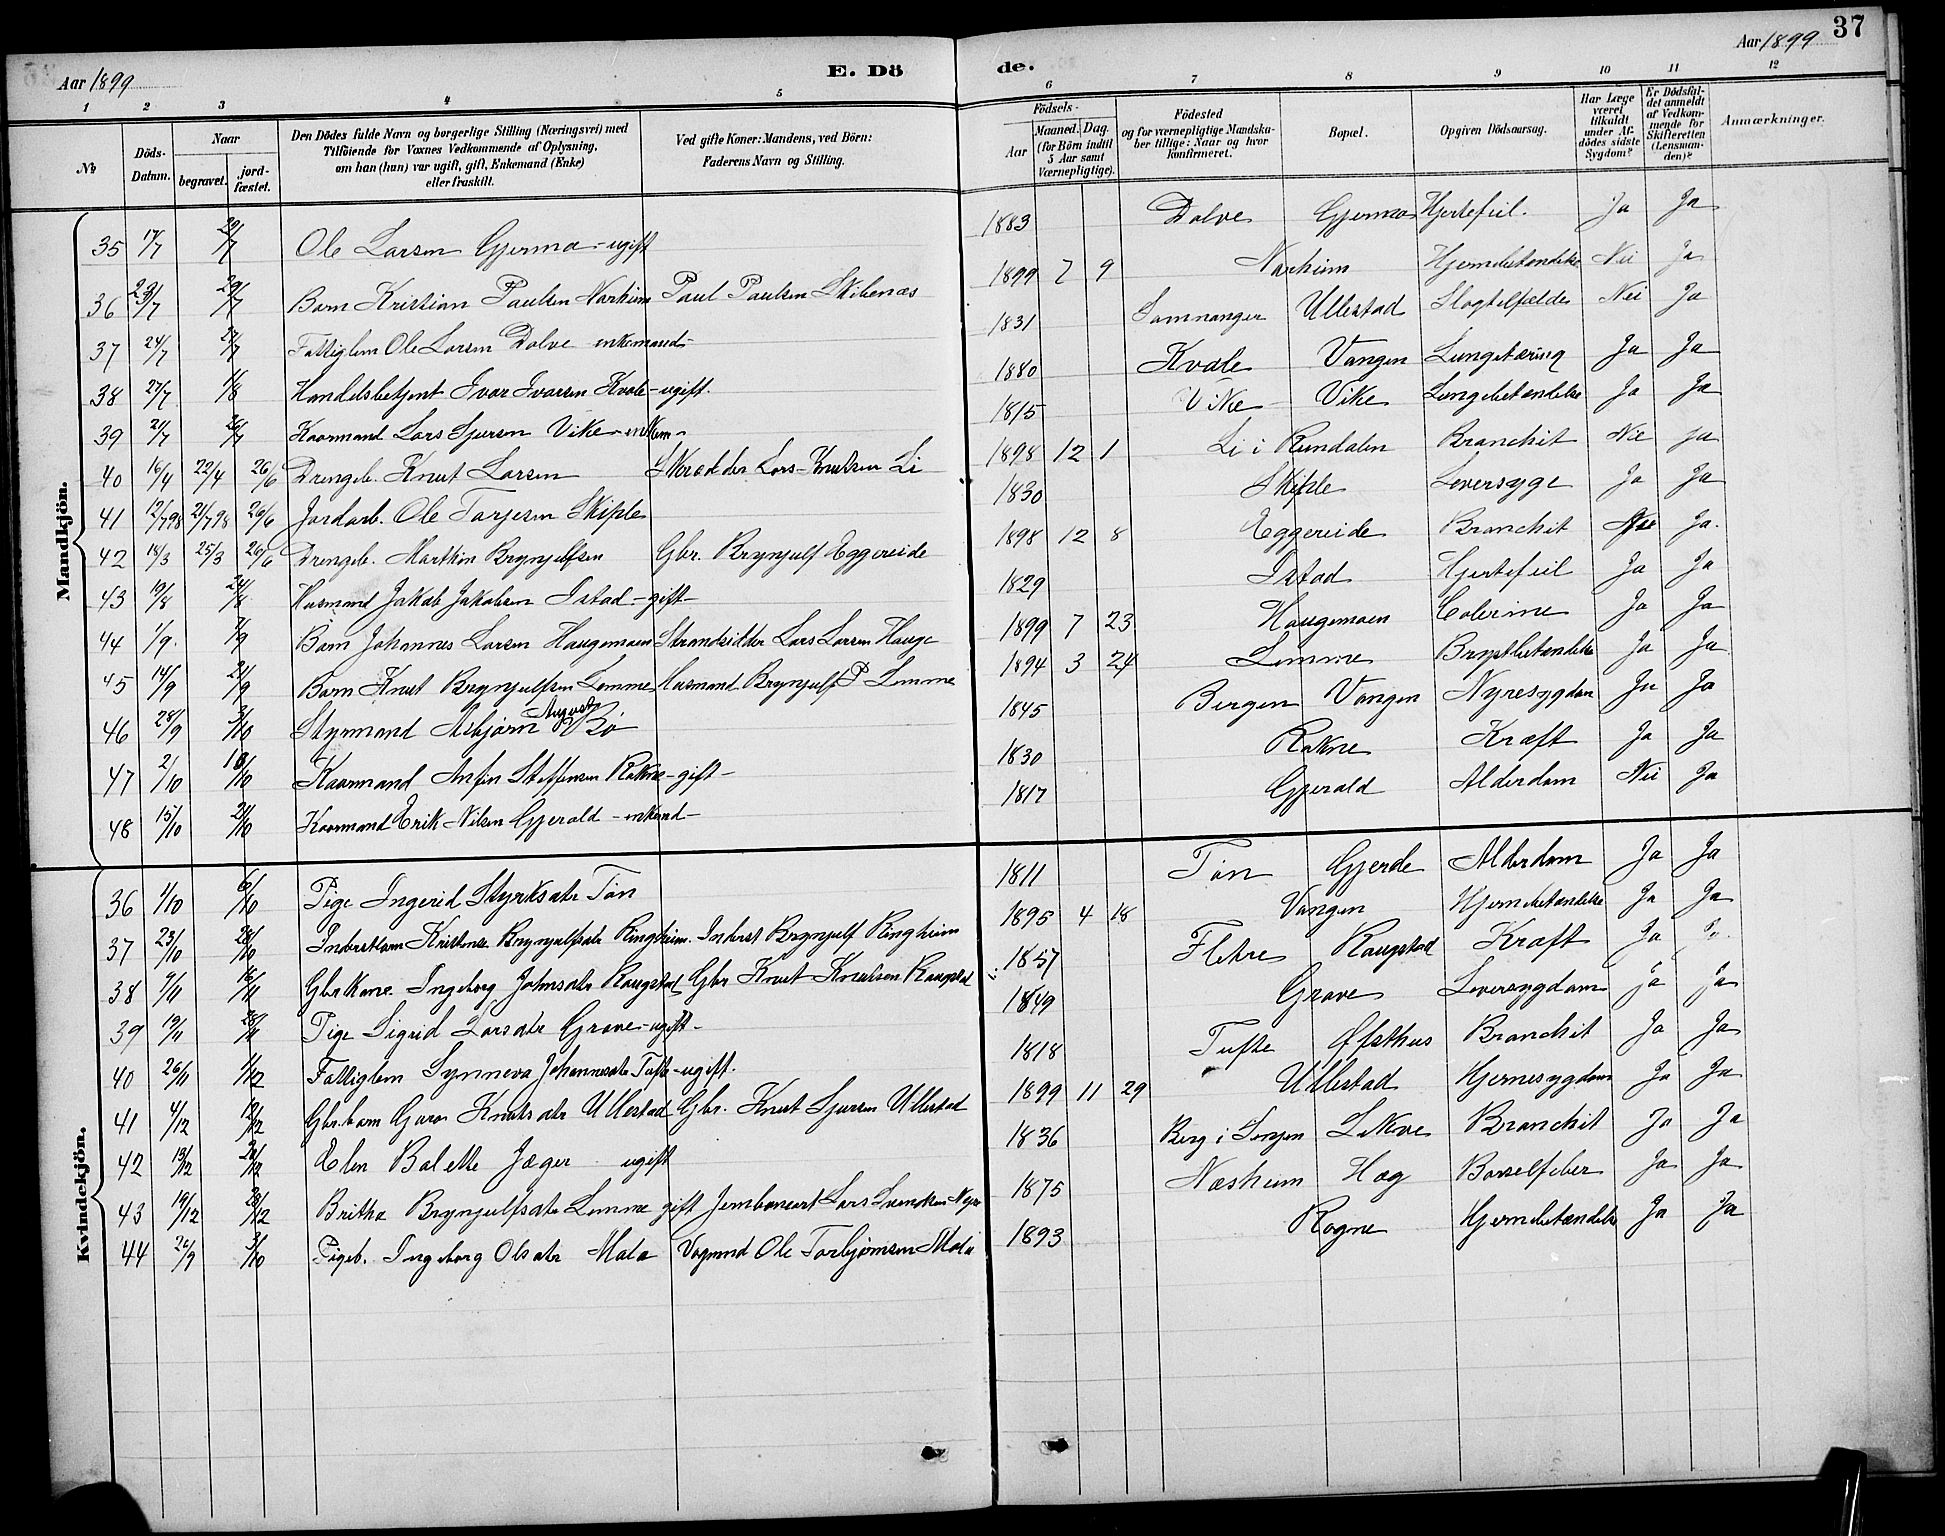 37
Aar 1899
E. Dö
de.
Aar 1899
1 2 3 4 5 6 7 8 9 10 11 12
№
Döds-Datum.
Naar
begravet.
jord-fæstet.
Den Dödes fulde Navn og borgerlige Stilling (Næringsvei) med
Tilföiende for Voxnes Vedkommende af Oplysning,
om han (hun) var ugift, gift, Enkemand (Enke)
eller fraskilt.
Ved gifte Koner: Mandens, ved Börn:
Faderens Navn og Stilling.
Födsels-
Aar
Maaned. Dag.
(for Börn indtil
5 Aar samt
Værnepligtige).
Födested
og for værnepligtige Mandska-
ber tillige: Naar og hvor
konfirmeret.
Bopæl.
Opgiven Dödsaarsag.
Har Læge
været
tilkaldt
under Af-
dödes sidste
Sygdom?
Er Dödsfal-
det anmeldt
af Vedkom-
mende for
Skifteretten
(Lensman-
den)?
Anmærkninger.
Mandkjön.
35 17/7 Ole Larsen Gjerma - ugift 1883 Dolve Gjerma Hjertefeil. Ja Ja
36 23/7 29/7 Barn Kristian Paulsen Norheim Paul Paulsen Skibenæs 1899 7 9 Norheim Hjernebetændelse Nei Ja
37 24/7 Fattiglem Ole Larsen Dolve enkemand - 1831 Samnanger Ullestad Slagtilfælde Nei Ja
38 27/7 1/8 Handelsbetjent Ivar Ivarsen Kvale - ugift. 1880 Kvale Vangen Lungetæring Ja Ja
39 21/7 26/7 Kaarmand Lars Sjursen Vike - enkem - 1815 Vike Vike Lungebetændelse Ja Ja
40 16/4 22/4 26/6 Drengeb. Knut Larsen Skrædder Lars Knutsen Li 1898 12 1 Li i Rundalen Bronchit Nei Ja
41 12/7 98 21/7 98 26/6 Jordarb. Ole Torjesen Skiple 1830 Skiple Leversyge Ja Ja
42 18/3 25/3 26/6 Drengeb. Marthin Brynjulfsen Gbr. Brynjulf Eggereide 1898 12 8 Eggereide Bronchit Nei Ja.
43 19/8 24/8 Husmand Jakob Jakobsen Istad - gift - 1829 Istad Hjertefeil Ja Ja
44 1/9. 7/9 Barn Johannes Larsen Haugemoen Strandsidder Lars Larsen Hauge 1899 7 23 Haugemoen Colerine Ja Ja
45 14/9 21/9 Barn Knut Brynjulfsen Lemme Husmand Brynjulf P Lemme 1894 3 24 Lemme Brystbetændelse Ja Ja
46 28/9 3/10 Styrmand Asbjørn August Bö 1845 Bergen Vangen Nyresygdom Ja Ja
47 2/10 10/10 Kaarmand Anfin Steffensen Rokne - gift - 1830 Rokne Kræft Ja Ja
48 15/10 21/10 Kaarmand Erik Nilsen Gjerald - enkemd - 1817 Gjerald Alderdom Nei Ja
Kvindekjön.
36 1/10 6/10 Pige Ingerid Styrksdtr Tön 1811 Tön Gjerde Alderdom Ja Ja
37 23/10 28/10 Inderstbarn Kristense Brynjulfsdtr Ringheim. Inderst Brynjulf Ringheim 1895 4 18 Vangen Hjernebetændelse Ja Ja
38 9/11 Gbrkone Ingeborg Johnsdtr Raugstad Gbr Knut Knutsen Raugstad 1857 Fletre Raugstad Kræft Ja
39 19/11 28/11 Pige Sigrid Larsdtr Grove - ugift - 1849 Grove Leversygdom Ja Ja
40 26/11 1/12 Fattiglem Synneva Johannesdtr Tufte - ugift. 1818 Tufte Øfsthus Bronchit Ja Ja
41 4/12 12/12 Gbr. barn Guro Knutsdtr Ullestad Gbr. Knut Sjursen Ullestad 1899 11 29 Ullestad Hjernesygdom Ja Ja
42 13/12 Elen Bolette Jæger ugift 1836 Berg i Lenjen Lekve Bronchit Ja Ja
43 19/12 Britha Brynjulfsdtr Lemme gift Jernbanearb Lars 1875 Næsheim Hæg Barselfeber Ja Ja
44 26/9 3/10 Pigeb. Ingeborg Olsdtr Mala Vognmd Ole Torbjørnsen Mala 1893 Rogne Hjernebetændelse Ja Ja